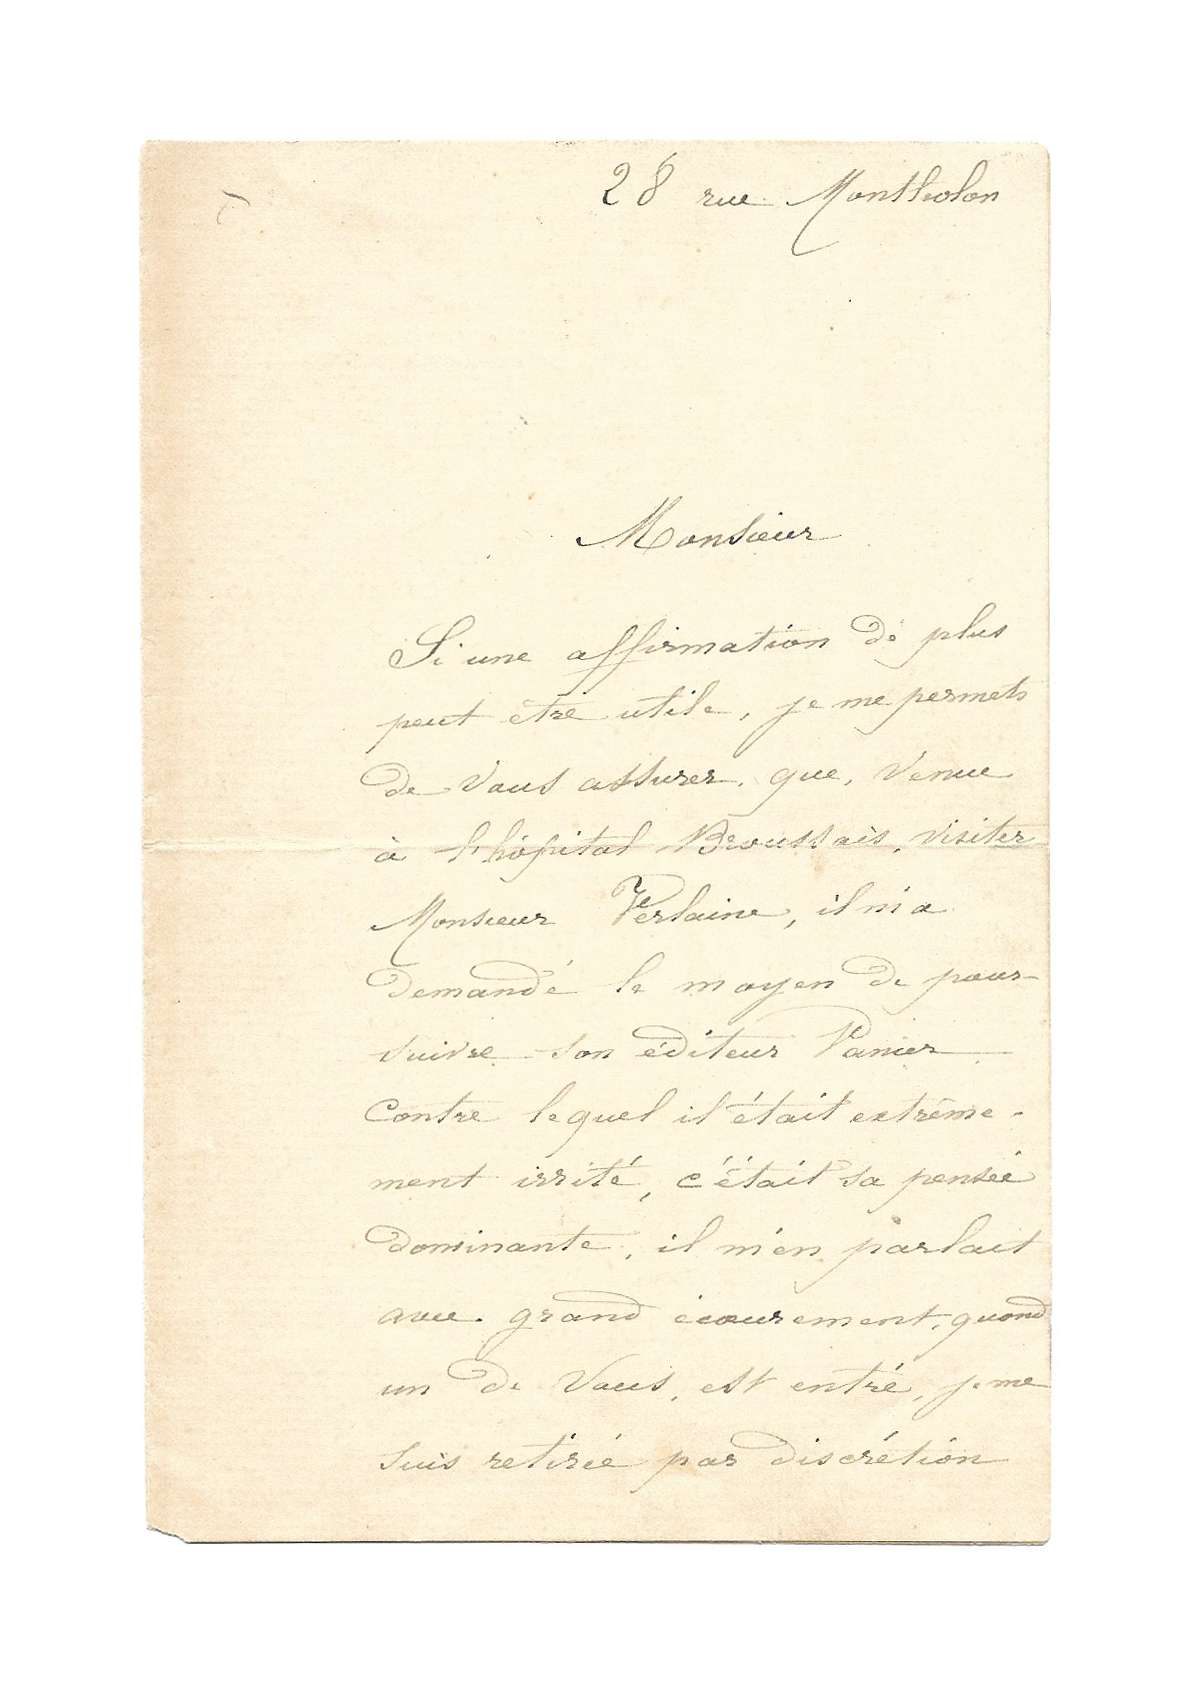 28 rue Montholon
Monsieur
Si une affirmation de plus
peut être utile, je me permets
de Vous assurer, que, Venue
à l'hôpital Broussais, Visiter
Monsieur Verlaine, il m'a
demandé le moyen de pour-
suivre son éditeur Vanier
contre lequel il était extrême-
ment irrité, c'était sa pensée
dominante, il m'en parlait
avec grand écœurement, quand
un de Vous, est entré, je me
suis retirée par discrétion